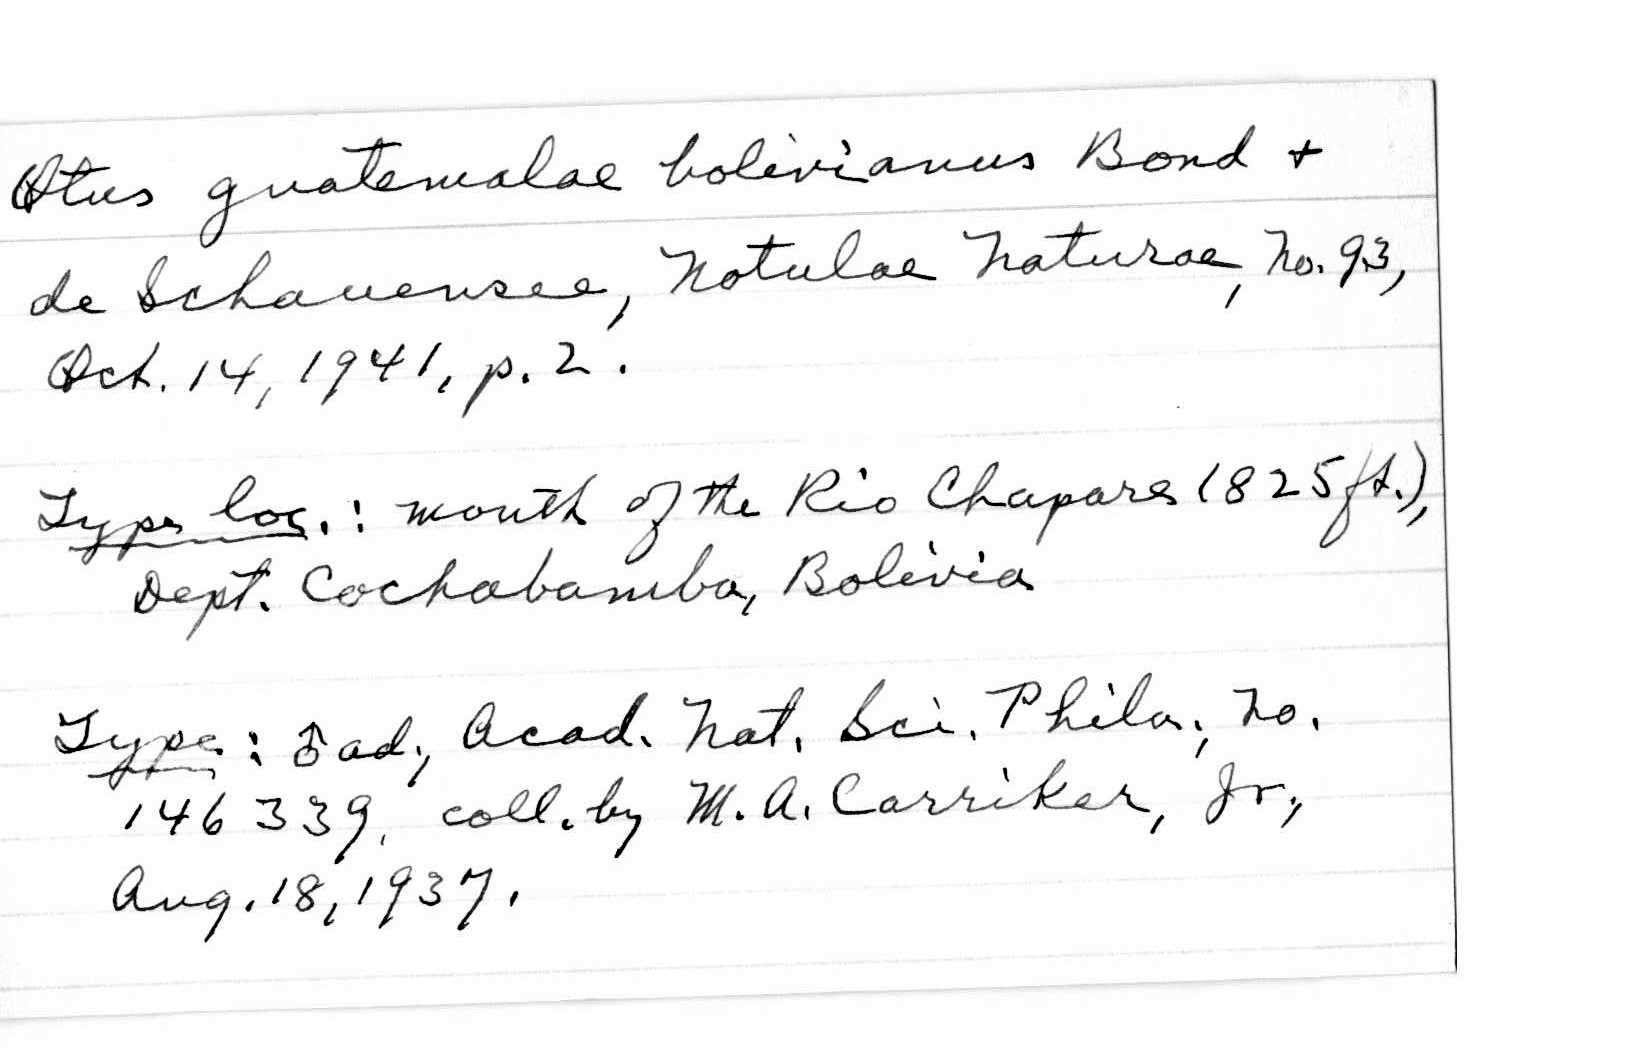 Otus guatemalae bolivianus Bond +
de Schauensee, Notulae Naturae, No. 93,
Oct. 14, 1941, p. 2.
Type loc.: mouth of the Rio Chapare (825 ft.),
Dept. Cochabamba, Bolivia
Type: ♂ ad., Acad. Nat. Sci. Phila., No.
146339, coll. by M. A. Carriker, Jr.,
Aug. 18, 1937.